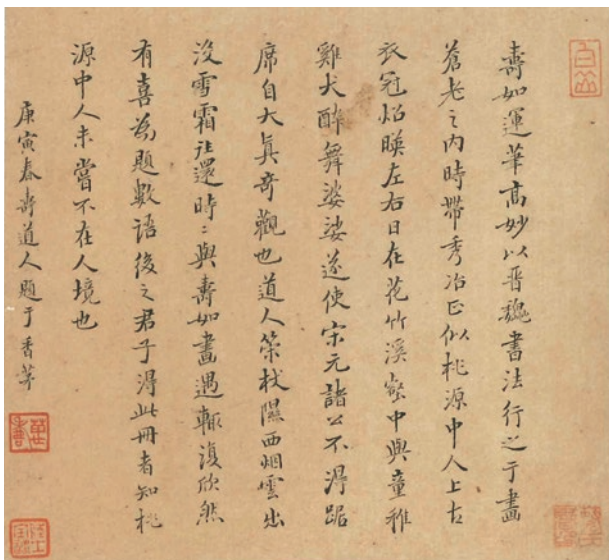 壽如運華高妙以晉魏書法行之于畫
蒼老之內時帶秀冶正似桃源中人上古
衣冠炤暎左右日在花竹溪壑中與童稚
雞犬酔舞婆娑遂使宋元諸公不淂踞
席自大真奇觀也道人策杖隰西烟雲出
沒雪霜往還時〻與壽如畫遇輒復欣然
有喜為題數語後之君子淂此冊者知桃
源中人未嘗不在人境也
庚寅春壽道人題于香茅